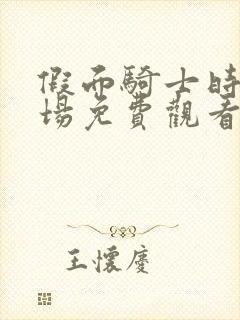 假面騎士時
場免費觀看
王懷慶